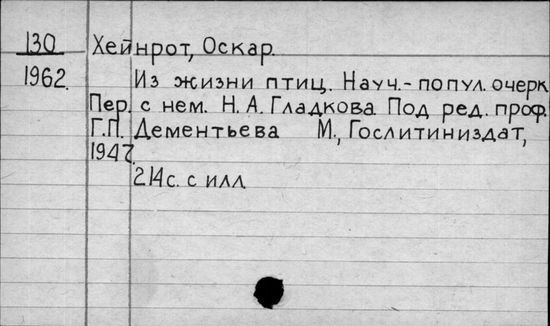 130 Хейнрот, Оскар.
1962. Из жизни птиц. Науч.- попул. очерк
Пер. с нем. Н. А. Гладкова. Под ред. проф.
Г.П. Дементьева М., Гослитиниздат,
1947.
214с. с илл